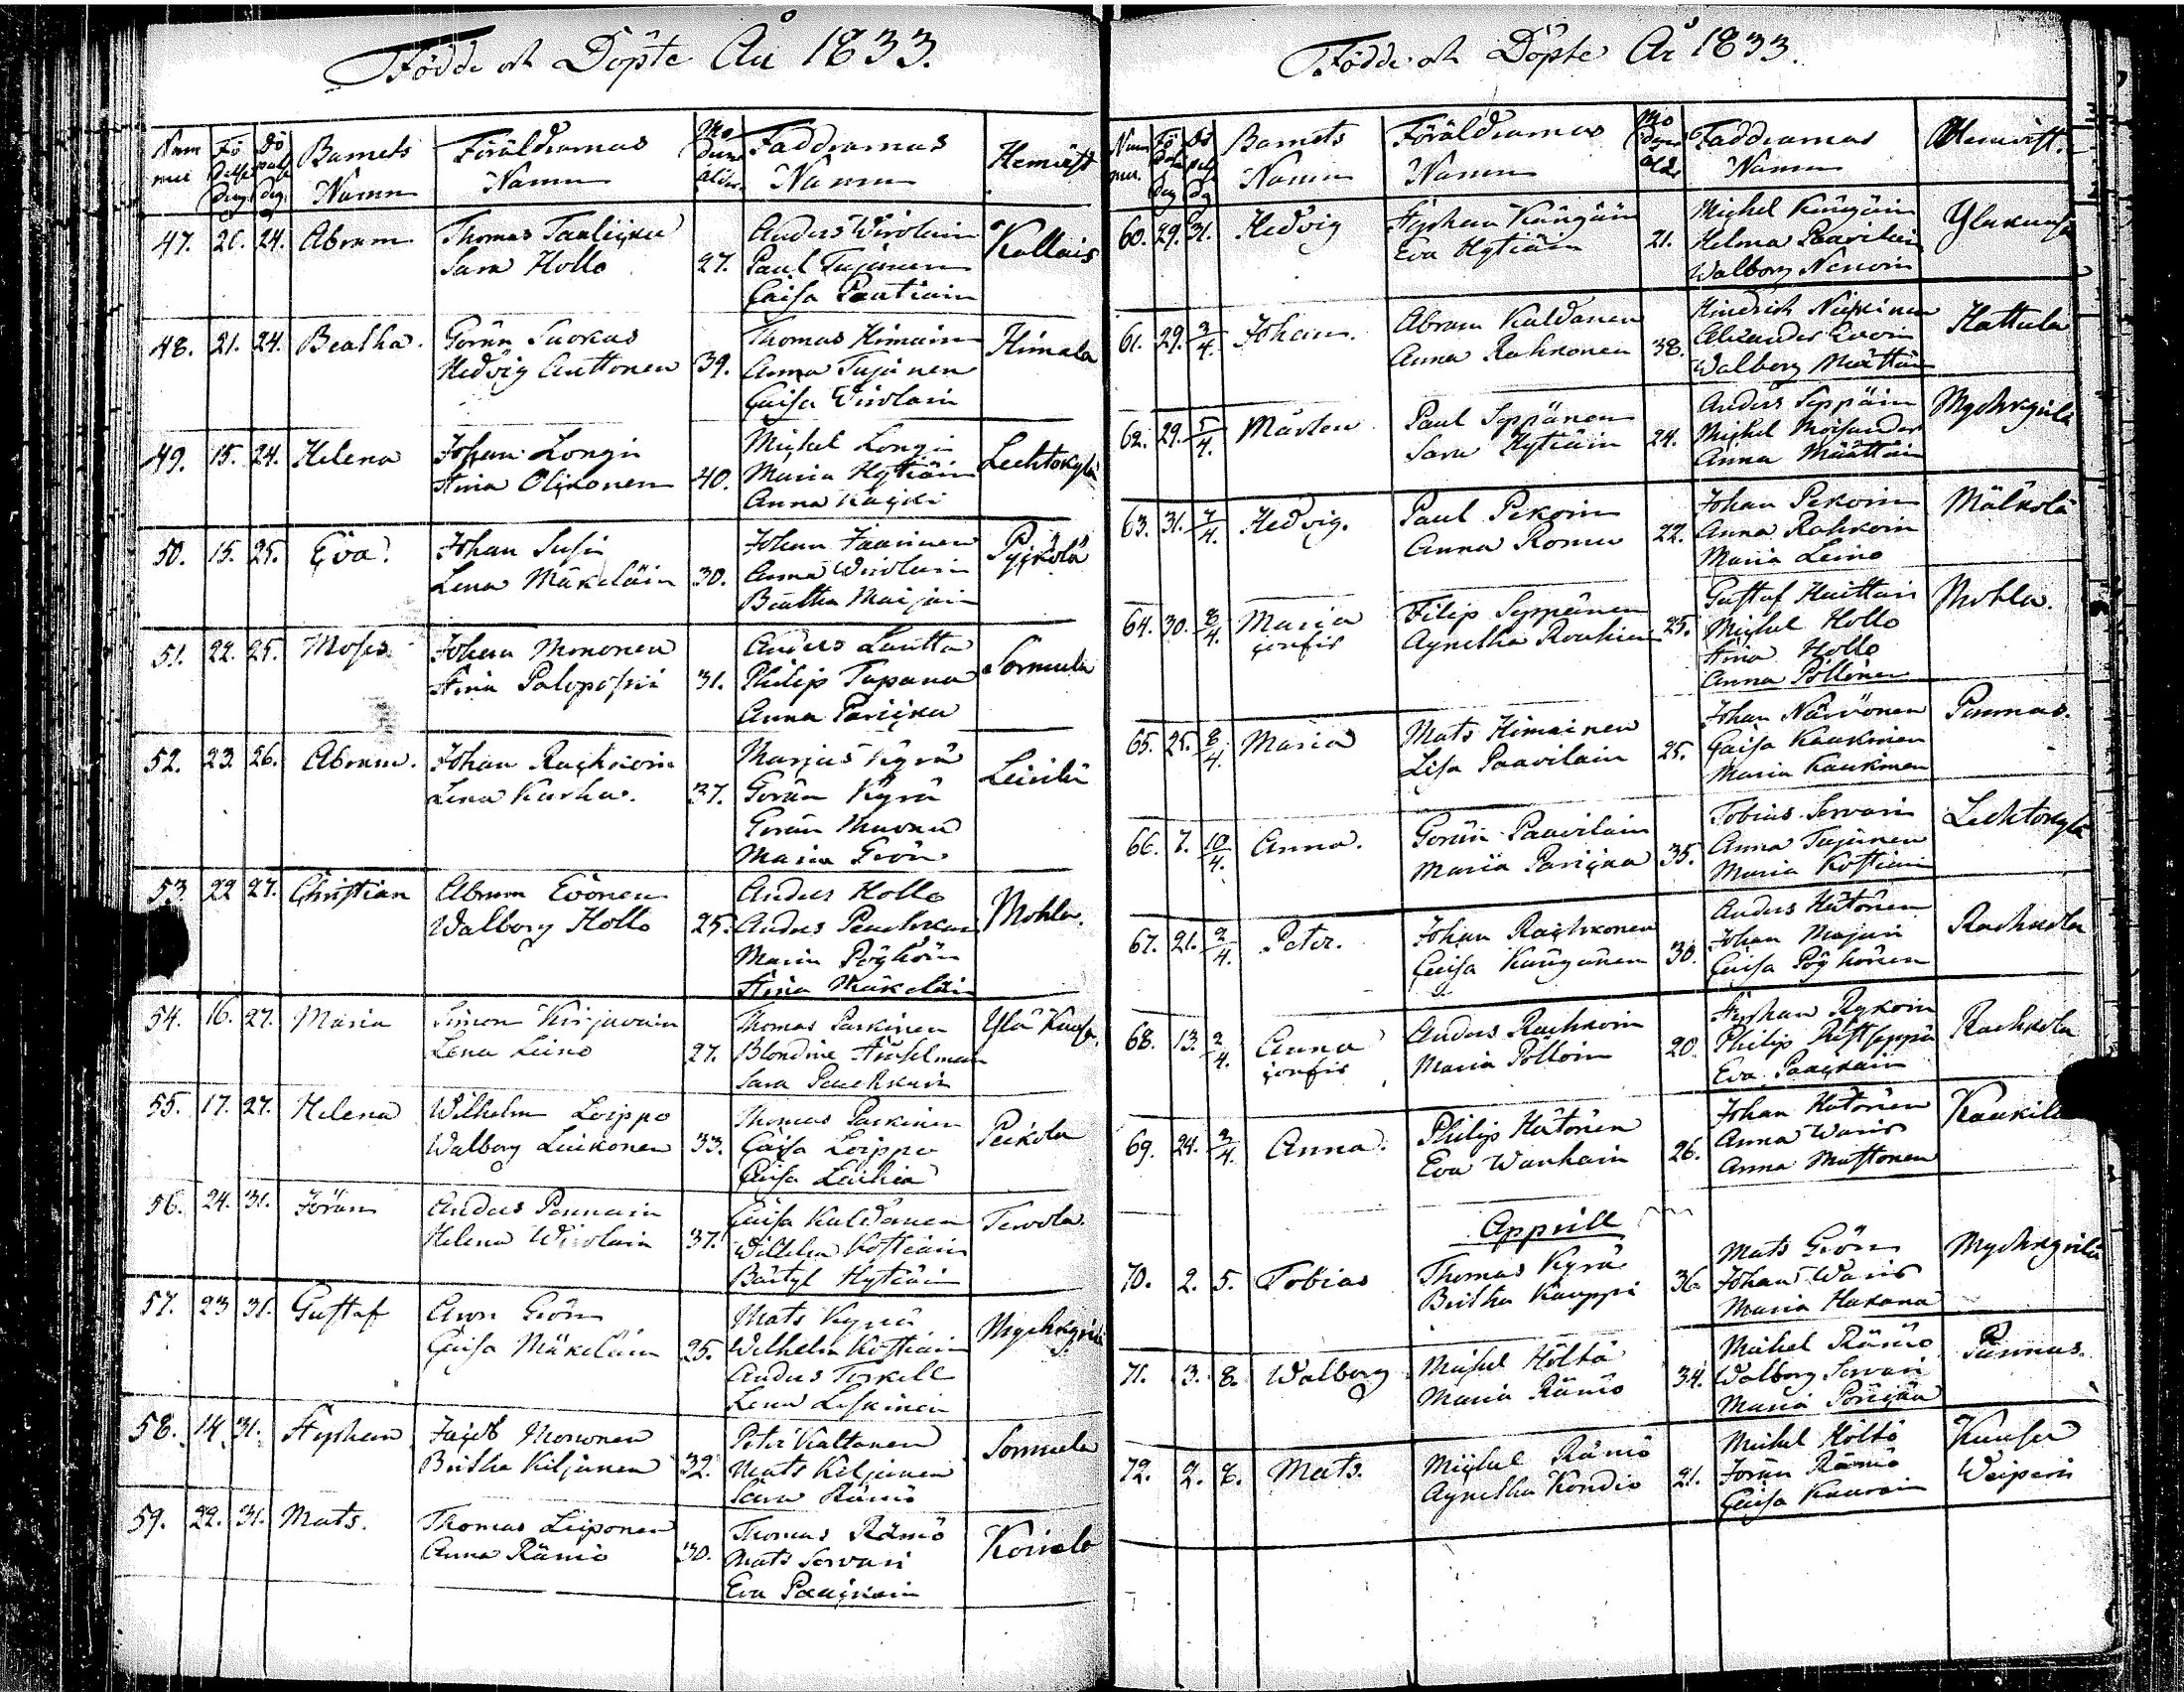 Födde och Döpte År 1833.
Num mer Fö delse Dag Dö pelse dag. Barnets Namn Föräldrarnas Namn Mo drens ålder Faddrarnas Namn Hemvist
47. 20. 24. Abram Thomas Sara Hollo 27. Anders Wirolain Paul Tujunen Caisa Pautiain Kallais
48. 21. 24. Beatha. Görän Suokas Hedvig Anttonen 39. Thomas Himain Anna Tujunen Caisa Wirolain Himala
49. 15. 24. Helena Johan Longi Stina Olikonen 40. Michel Longi Maria Hytiäin Anna Lechtokylä
50. 15. 25. Eva. Johan Susi Lena Mäkeläin 30. Johan Jaarinen Anna Wirolain Beatha Maijain Pyykölä
51. 22. 25. Moses Johan Mononen Stina Paloposki 31. Anders Lautta Philip Tapana Anna Parikka Sormula
52. 23. 26. Abram. Johan Rachkoin Lena Karhu. 37. Marjus Kyrä Görän Kyrä Görän Maria Grön Leinilä
53. 22. 27. Christian Abram Evonen Walborg Hollo 25. Anders Hollo Anders Maria Pöyhöin Stina Mäkeläin Mohla.
54. 16. 27. Maria Simon Kirjavain Lena Leino 27. Thomas Paskinen Blondine Sara Ylä Kuusa
55. 17. 27. Helena Wilhelm Loippo Walborg Luukonen 33. Thomas Paskinen Caisa Loippo Caisa Peikola
56. 24. 31. Jöran Anders Pennain Helena Wirolain 37. Caisa Kaldanen Wilhelm Kostiain Bärtyl Hytiäin Tervola.
57. 23. 31. Gustaf Aron Grön Caisa Mäkeläin 25. Mats Kyrä Wilhelm Kostiain Anders Torkell Lena Leskinen Mychkyrilä
58. 14. 31. Stephan Jacob Mononen Britha Kiljunen 32. Peter Kaltanen Mats Kiljunen Sara Rämö Sormula
59. 22. 31. Mats. Thomas Leiponen Anna Rämö 30. Thomas Rämö Mats Sorvari Eva Paakkoin Koirola
Födde och Döpte År 1833.
Num mer. Fö delse Dag Dö pelse dg Barnets Namn Föräldrarnas Namn Mo dren åld. Faddrarnas Namn Hemvist.
60. 29. 31. Hedvig Stephan Kängäin Eva Hytiäin 21. Michel Kängäin Helena Paavilain Walborg Nenoin Ylakuusa
61. 29. 2/4. Johan. Abram Kaldanen Anna Rahkonen 38. Hindrich Alexander Evoin Walborg Määttäin Hattula
62. 29. 5/4. Mårten Paul Seppänen Sara Hytiäin 24. Anders Seppäin Michel Anna Määttäin Mychkyrilä
63. 31. 7/4. Hedvig. Paul Pekoin Anna Romu 22. Johan Pekoin Anna Rahkoin Maria Leino Mälkölä
64. 30. 8/4. Maria Filip Seppänen Agnetha Rouhia 25. Gustaf Huittain Michel Hollo Stina Hollo Anna Pöllönen Mohla.
65. 25. 8/4. Maria Mats Himainen Lisa Paavilain 25. Johan Närvönen Caisa Kaukinen Maria Kaukinen Punnus.
66. 7. 10/4. Anna. Görän Paavilain Maria Parikka 35. Tobias Sorvari Anna Tujunen Maria Kostiain Lechtokylä
67. 21. 2/4. Peter. Johan Rachkonen Caisa Kängänen 30. Anders Hätönen Johan Majuri Caisa Pöyhönen Rachkola
68. 13. 2/4. Anna Anders Rachkoin Maria Pölloin 20. Stephan Rykoin Philip Ristseppä Eva Paakkoin Rachkola
69. 24. 3/4. Anna. Philip Hätönen Eva Wanhain 26. Johan Hätönen Anna Waris Anna Mustonen Kaukila
Appsill
70. 2. 5. Tobias Thomas Kyrä Britha Kauppi 36. Mats Grön Johan Waris Maria Hakana Mychkyrilä
71. 3. 8. Walborg Michel Höltä Maria Rämö 34. Michel Rämö Walborg Sorvari Maria Pörykä Punnus.
72. 2. 8. Mats. Michel Rämö Agnetha Kondio 21. Michel Höltö Jorän Rämö Caisa Kaurain Kuusa Weiperi